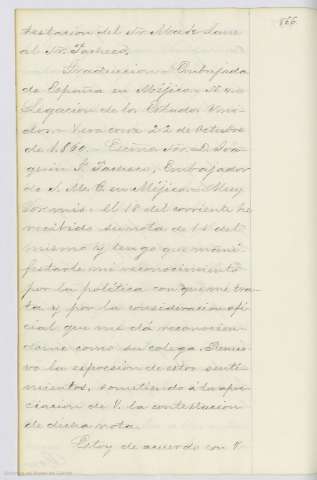 866
testacion del Sr. Mac-Lane
al Sr. Pacheco.
Traduccion = Embajada
de España en Méjico =
Legacion de los Estados Uni-
dos = Veracruz 22 de Octubre
de 1860. = Excmo Sor. D. Joa-
quin F. Pacheco, Embajador
de S. M. C. en Méjico = Muy
Sor mio: El 18 del corriente he
recibido su nota de 15 del
mismo y tengo que mani-
festarle mi reconocimiento
por la política con que me tra-
ta y por la consideracion ofi-
cial que me dá reconocien-
dome como su colega.
la esposicion de estos senti-
mientos, sometiendo á la apre-
ciacion de V. la contestacion
de dicha nota.
Estoy de acuerdo con V.